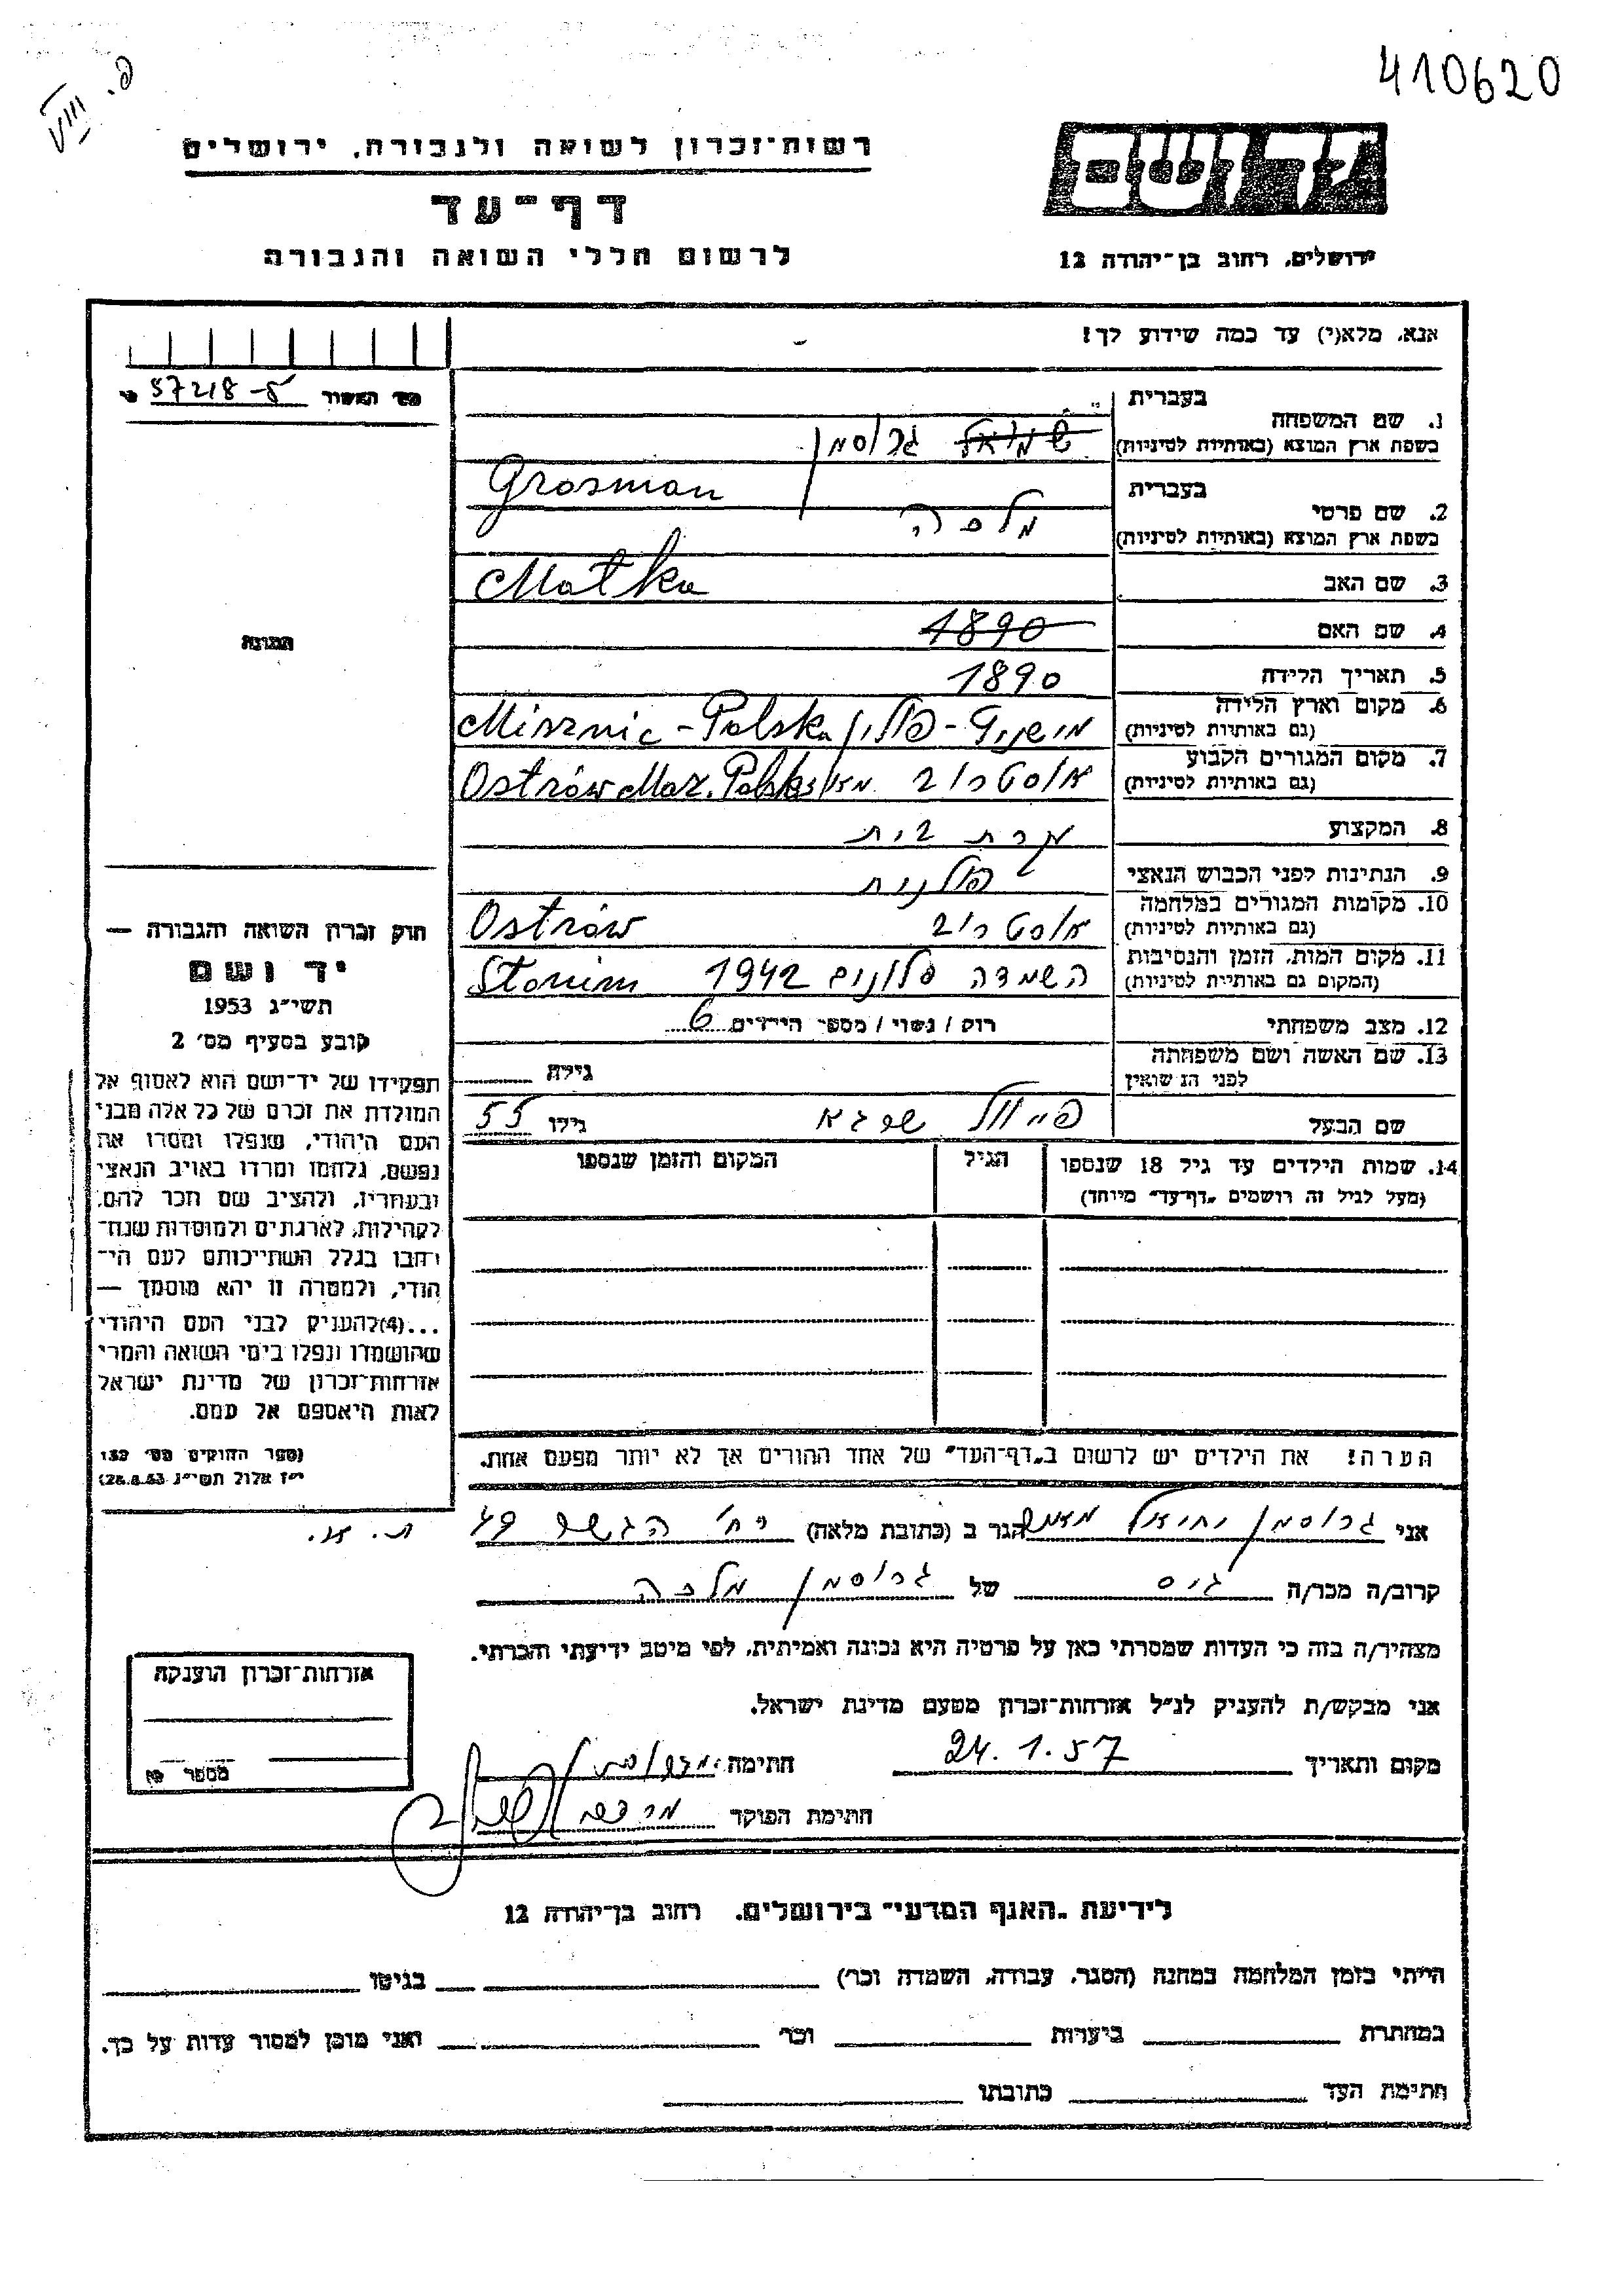 410620
VIII פ.
רשות־זכרון לשואה ולגבורה, ירושלים
דף־עד
לרשום חללי השואה והגבורה
ירושלים, רחוב בן־יהודה 12
אנא, מלא(י) עד כמה שידוע לך!
מס׳ האשור 57218-5
1. שם המשפחה
בעברית
שמואל גרוסמן
בשפת ארץ המוצא (באותיות לטיניות)
Grosman
2. שם פרטי
בעברית
מלכה
בשפת ארץ המוצא (באותיות לטיניות)
Matka
3. שם האב
4. שם האם
1890
5. תאריך הלידה
1890
6. מקום וארץ הלידה
(גם באותיות לטיניות)
מישניץ - פולין Misznic - Polska
7. מקום המגורים הקבוע
(גם באותיות לטיניות)
אוסטרוב Ostrów Maz. Polska
8. המקצוע
עקרת בית
9. הנתינות לפני הכבוש הנאצי
פולנית
10. מקומות המגורים במלחמה
(גם באותיות לטיניות)
אוסטרוב Ostrów
11. מקום המות, הזמן והנסיבות
(המקום גם באותיות לטיניות)
השמדה סלונים 1942 Stonim
12. מצב משפחתי
רוק / נשוי / מספר הילדים 6
13. שם האשה ושם משפחתה
לפני הנשואין
גילה
שם הבעל
פייוול שרגא
גילו 55
14. שמות הילדים עד גיל 18 שנספו
(מעל לגיל זה רושמים "דף־עד" מיוחד)
הגיל
המקום והזמן שנספו
הערה! את הילדים יש לרשום ב"דף־העד" של אחד ההורים אך לא יותר מפעם אחת.
התמונה
חוק זכרון השואה והגבורה —
יד ושם
תשי״ג 1953
קובע בסעיף מס׳ 2
תפקידו של יד־ושם הוא לאסוף אל
המולדת את זכרם של כל אלה מבני
העם היהודי, שנפלו ומסרו את
נפשם, נלחמו ומרדו באויב הנאצי
ובעוזריו, ולהציב שם וזכר להם,
לקהילות, לארגונים ולמוסדות שנח־
רבו בגלל השתייכותם לעם הי־
הודי, ולמטרה זו יהא מוסמך —
...(4)להעניק לבני העם היהודי
שהושמדו ונפלו בימי השואה והמרי
אזרחות־זכרון של מדינת ישראל
לאות היאספם אל עמם.
(ספר החוקים מס׳ 132
י״ז אלול תשי״ג 28.8.53)
אני גרוסמן יחיאל הגר ב (כתובת מלאה) רח׳ הגשר 49
ת. א.
קרוב/ה מכר/ה גיס של גרוסמן מלכה
מצהיר/ה בזה כי העדות שמסרתי כאן על פרטיה היא נכונה ואמיתית, לפי מיטב ידיעתי והכרתי.
אני מבקש/ת להעניק לנ״ל אזרחות־זכרון מטעם מדינת ישראל.
מקום ותאריך 24.1.57 חתימה
חתימת הפוקד
אזרחות־זכרון הוענקה
מספר
לידיעת "האגף המדעי" בירושלים, רחוב בן־יהודה 12
הייתי בזמן המלחמה במחנה (הסגר, עבודה, השמדה וכר׳) בגיטו
במחתרת ביערות וכר׳ ואני מוכן למסור עדות על כך.
חתימת העד כתובתו